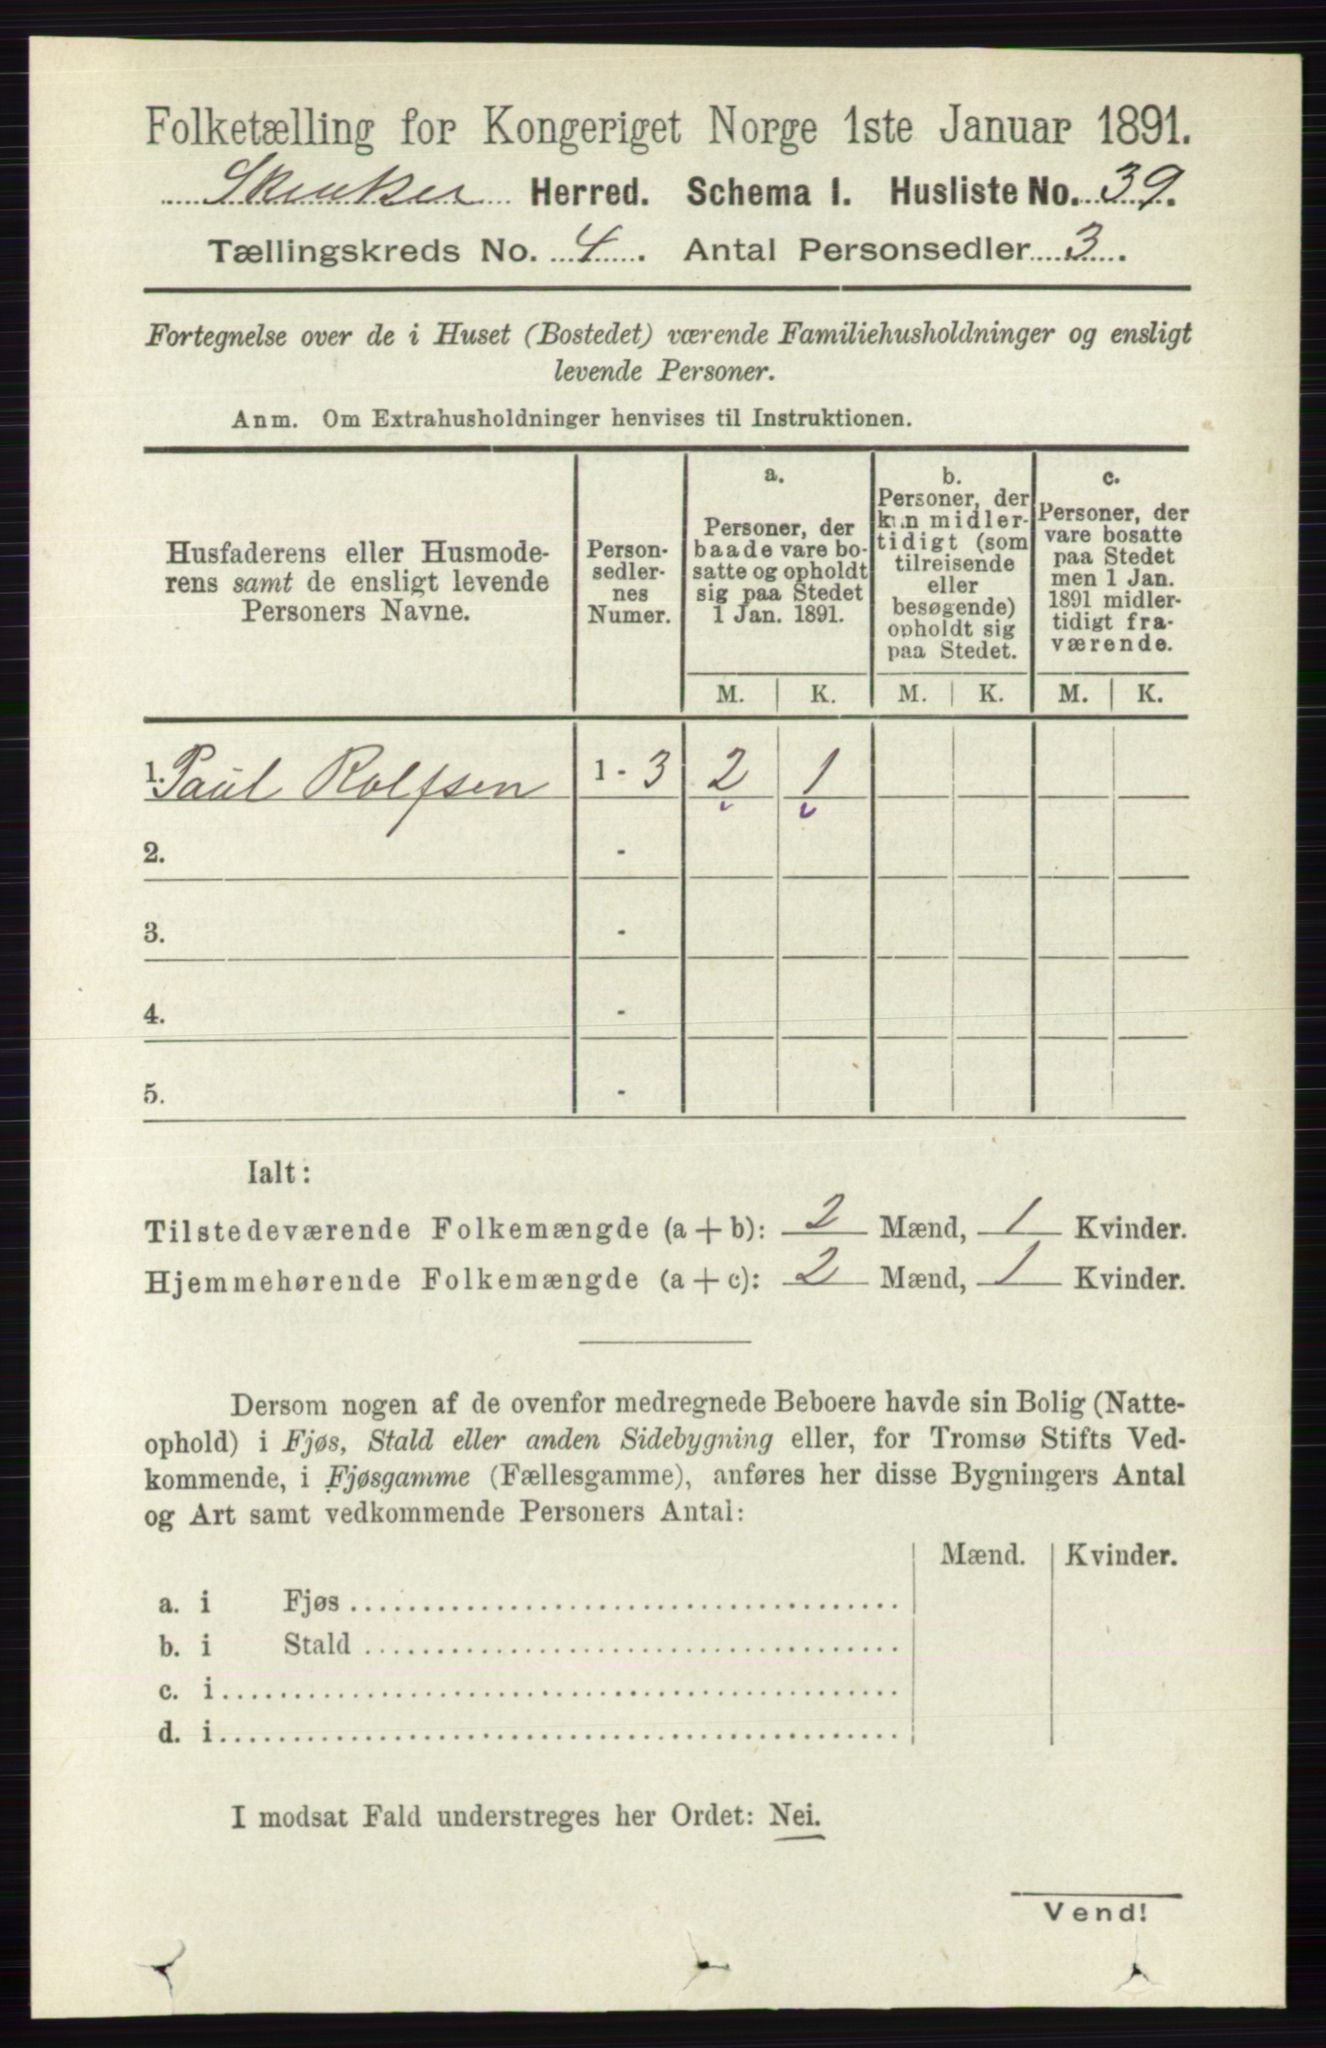 Folketælling for Kongeriget Norge 1ste Januar 1891.
Skiaker Herred. Schema I. Husliste No. 39.
Tællingskreds No. 4. Antal Personsedler 3.
Fortegnelse over de i Huset (Bostedet) værende Familiehusholdninger og ensligt
levende Personer.
Anm. Om Extrahusholdninger henvises til Instruktionen.
Husfaderens eller Husmode-
rens samt de ensligt levende
Personers Navne.
Person-
sedler-
nes
Numer.
a.
Personer, der
baade vare bo-
satte og opholdt
sig paa Stedet
1 Jan. 1891.
b.
Personer, der
kun midler-
tidigt (som
tilreisende
eller
besøgende)
opholdt sig
paa Stedet.
c.
Personer, der
vare bosatte
paa Stedet
men 1 Jan.
1891 midler-
tidigt fra-
værende.
M. K. M. K. M. K.
1. Paul Rolfsen 1 - 3 2 1
2. -
3. -
4. -
5. -
Ialt:
Tilstedeværende Folkemængde (a + b): 2 Mænd, 1 Kvinder.
Hjemmehørende Folkemængde (a + c): 2 Mænd, 1 Kvinder.
Dersom nogen af de ovenfor medregnede Beboere havde sin Bolig (Natte-
ophold) i Fjøs, Stald eller anden Sidebygning eller, for Tromsø Stifts Ved-
kommende, i Fjøsgamme (Fællesgamme), anføres her disse Bygningers Antal
og Art samt vedkommende Personers Antal:
Mænd. Kvinder.
a. i Fjøs
b. i Stald
c. i
d. i
I modsat Fald understreges her Ordet: Nei.
Vend!